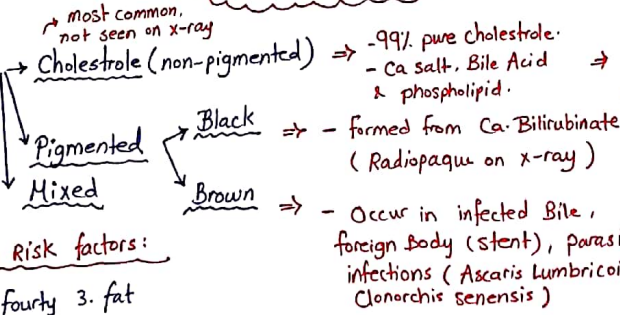 most common,
not seen on x-ray
Cholestrole (non-pigmented) ⇒ -99% pure cholestrole.
- Ca salt, Bile Acid ⇒
& phospholipid.
Pigmented
Black ⇒ - formed from Ca. Bilirubinate
(Radiopaque on x-ray)
Mixed
Brown ⇒ - Occur in infected Bile,
foreign Body (stent), paras
infections (Ascaris Lumbricoi
Clonorchis senensis)
Risk factors:
fourty 3. fat